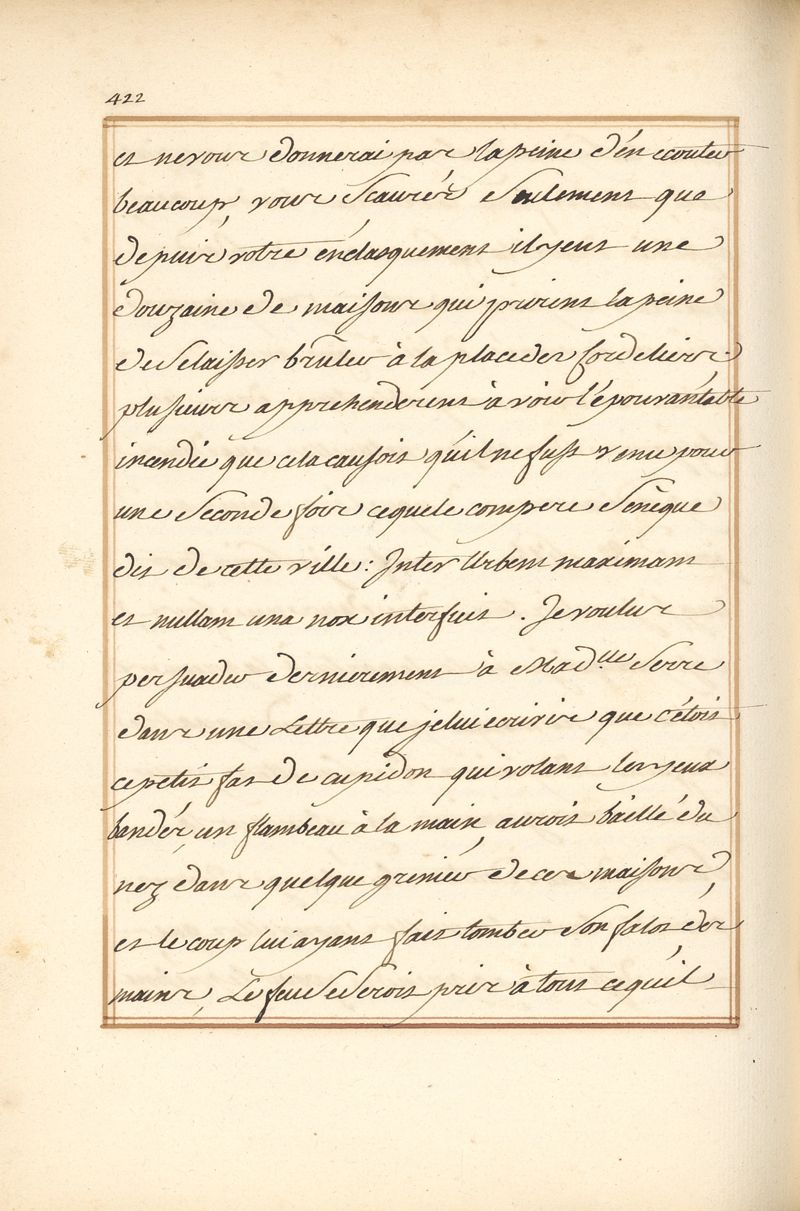 422
et ne vous donnerai pas la peine d'én ecouter
beaucoup, vous Scaurés Seulement que
depuis vôtre énclasquement il y eut une
douzaine de maisons qui prirent la peine
de Se laisser brûler à la place des Cordeliers.
plusieurs apprehenderent à voir l'épouvantable
incendie que cela causoit qu'il ne fust venu pour
une Seconde fois ce que le compere Sénèque
dit de cette ville : Inter Urbem maximam
et nullam una nox interfuit. Je voulus
persuader dernierement à Mad.lle Serre
dans une Lettre que je lui écrivis que c'étoit
ce petit fat de cupidon qui volant les yeux
bandés, un flambeau à la main, auroit baillé du
nez dans quelque grenier de ces maisons,
et le coup lui ayant fait tomber Son falot dés
mains, Le feu Se Seroit pris à tout ce qu'il